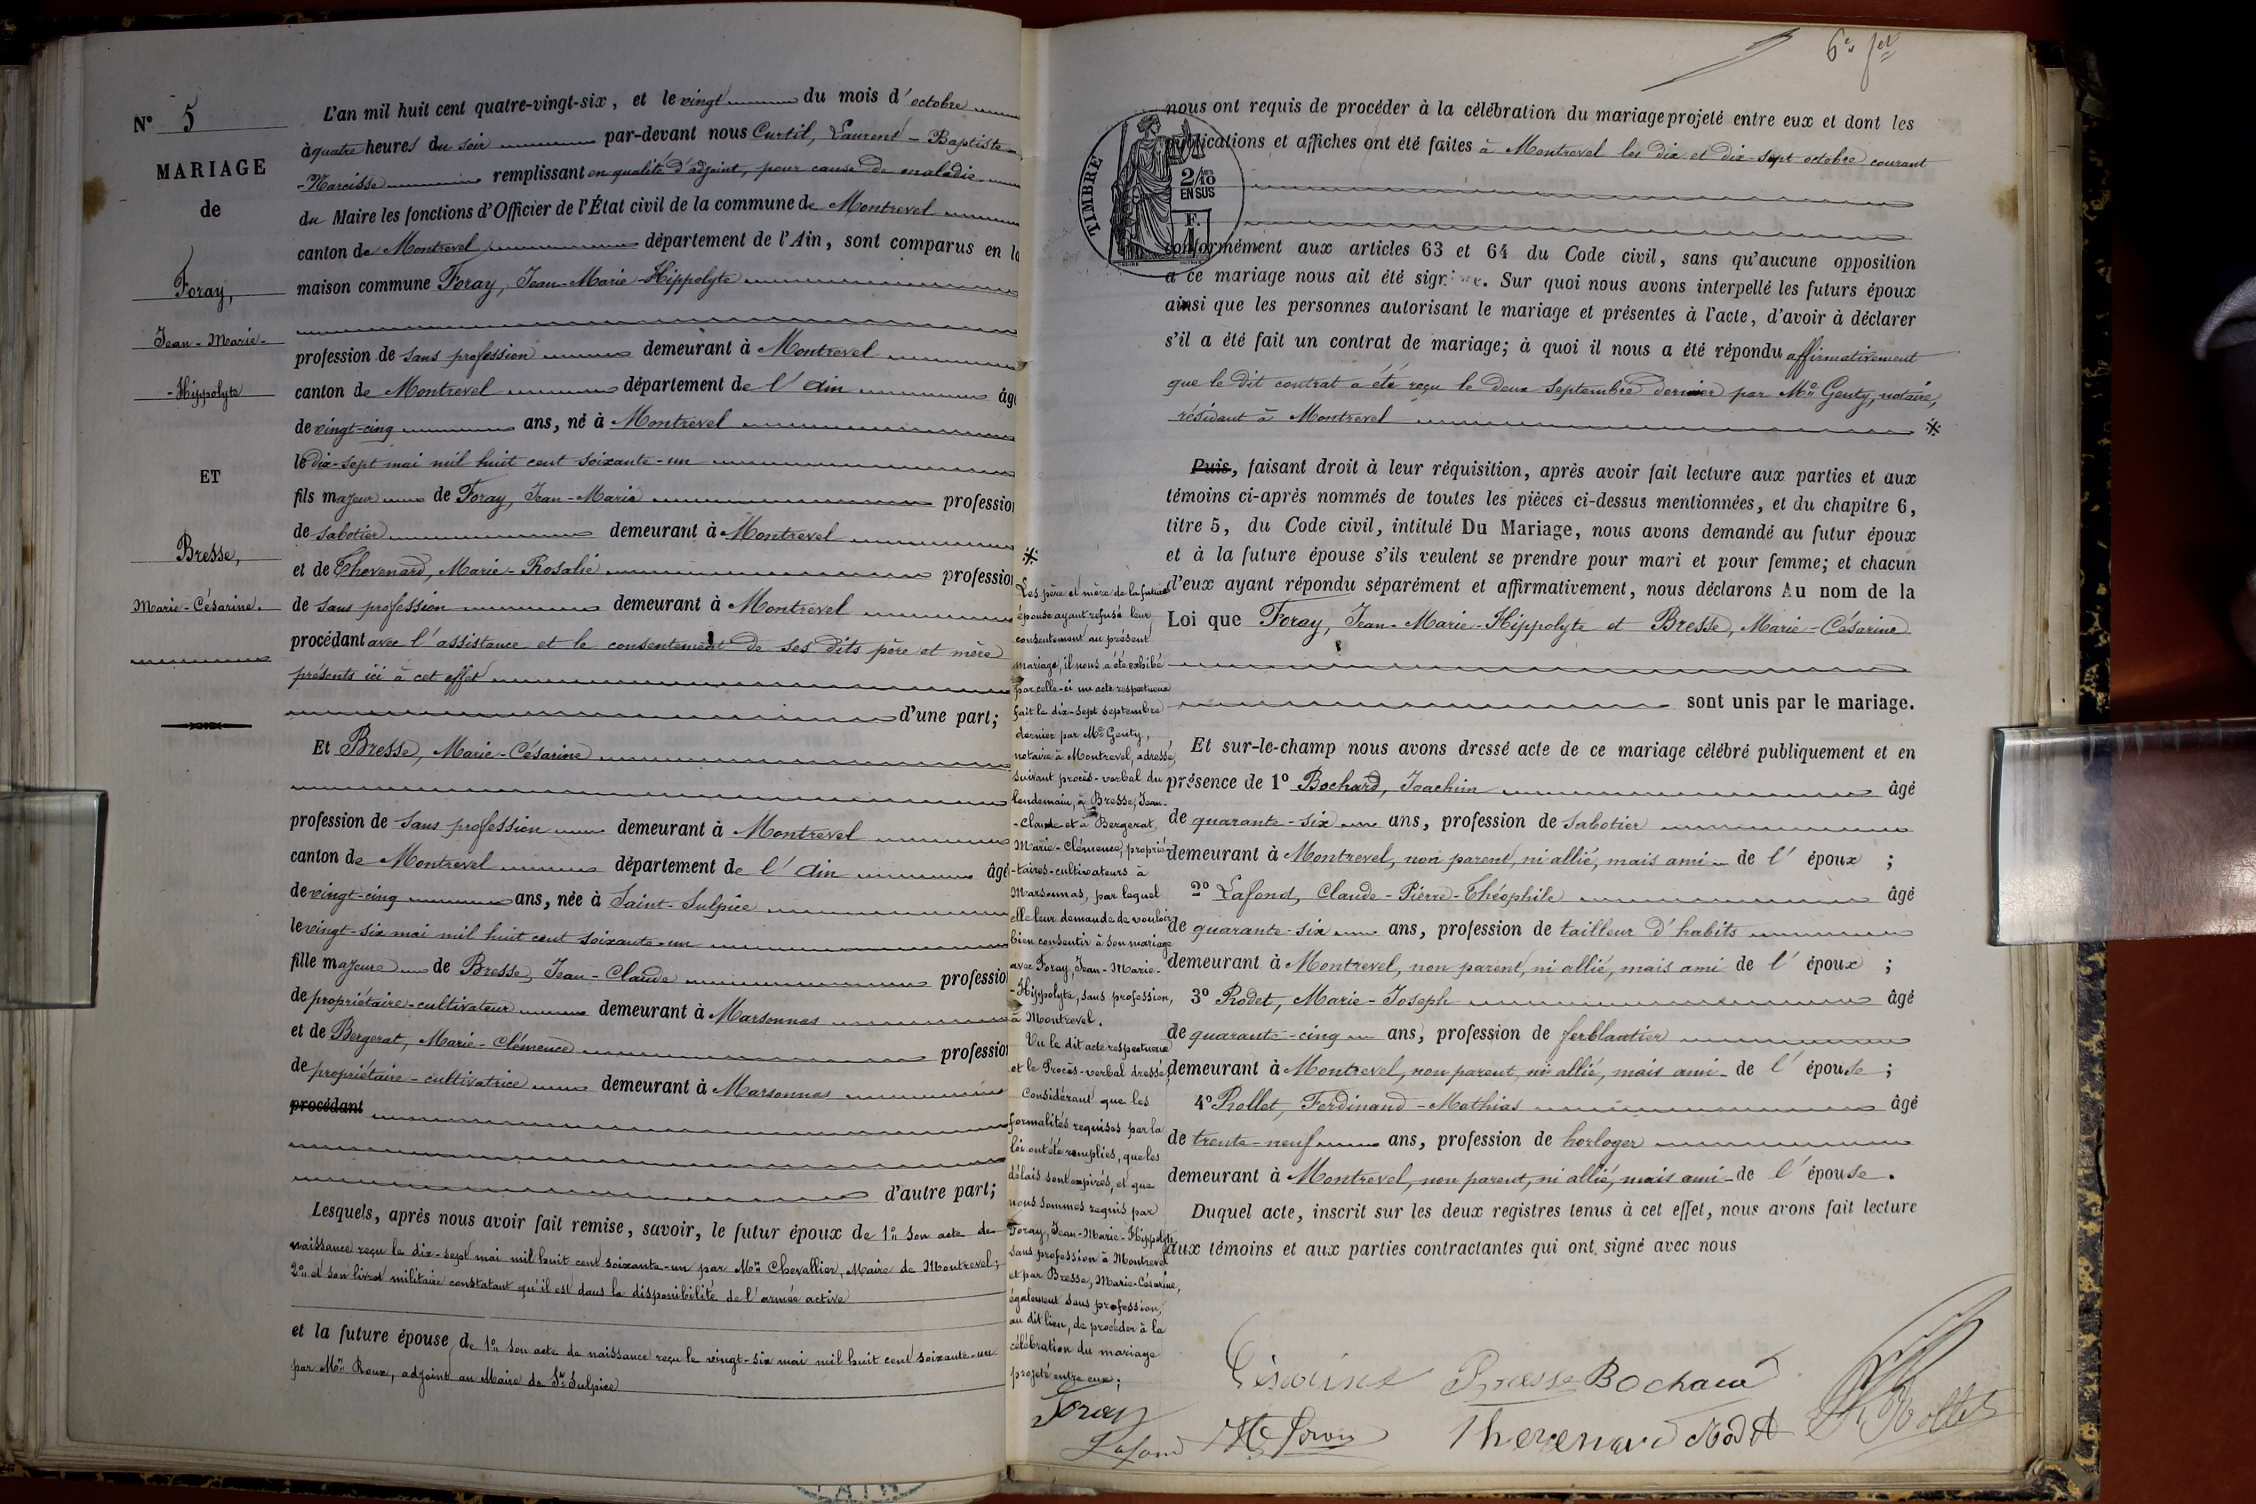 N° 5
MARIAGE
de
Foray,
Jean-Marie-
-Hippolyte
ET
Bresse,
Marie-Césarine.
L'an mil huit cent quatre-vingt-six, et le vingt du mois d'octobre
à quatre heures du soir par-devant nous Curtil, Laurent-Baptiste-
-Narcisse remplissant en qualité d'adjoint, pour cause de maladie
du Maire les fonctions d'Officier de l'État civil de la commune de Montrevel
canton de Montrevel département de l'Ain, sont comparus en la
maison commune Foray, Jean-Marie-Hippolyte
profession de sans profession demeurant à Montrevel
canton de Montrevel département de l'Ain âgé
de vingt-cinq ans, né à Montrevel
le dix-sept mai mil huit cent soixante-un
fils majeur de Foray, Jean-Marie profession
de sabotier demeurant à Montrevel
et de Thevenard, Marie-Rosalie profession
de sans profession demeurant à Montrevel
procédant avec l'assistance et le consentement de ses dits père et mère
présents ici à cet effet
d'une part;
Et Bresse, Marie-Césarine
profession de sans profession demeurant à Montrevel
canton de Montrevel département de l'Ain âgé
de vingt-cinq ans, née à Saint-Sulpice
le vingt-six mai mil huit cent soixante-un
fille majeure de Bresse, Jean-Claude profession
de propriétaire-cultivateur demeurant à Marsonnas
et de Bergerat, Marie-Clémence profession
de propriétaire-cultivatrice demeurant à Marsonnas
procédant
d'autre part;
Lesquels, après nous avoir fait remise, savoir, le futur époux de 1° son acte de
naissance reçu le dix-sept mai mil huit cent soixante-un par Mr Chevallier, Maire de Montrevel;
2° et son livret militaire constatant qu'il est dans la disponibilité de l'armée active
et la future épouse de 1° son acte de naissance reçu le vingt-six mai mil huit cent soixante-un
par Mr Roux, adjoint au Maire de St Sulpice
※
Les père et mère de la future
épouse ayant refusé leur
consentement au présent
mariage, il nous a été exhibé
par celle-ci un acte respectueux
fait le dix-sept septembre
dernier par Me Genty,
notaire à Montrevel, adressé,
suivant procès-verbal du
lendemain, à Bresse, Jean-
-Claude et à Bergerat,
Marie-Clémence, proprié-
-taires-cultivateurs à
Marsonnas, par lequel
elle leur demande de vouloir
bien consentir à son mariage
avec Foray, Jean-Marie-
-Hippolyte, sans profession,
à Montrevel.
Vu le dit acte respectueux
et le Procès-verbal dressé,
Considérant que les
formalités requises par la
loi ont été remplies, que les
délais sont expirés, et que
nous sommes requis par
Foray, Jean-Marie-Hippolyte
sans profession à Montrevel
et par Bresse, Marie-Césarine,
également sans profession,
au dit lieu, de procéder à la
célébration du mariage
projeté entre eux;
TIMBRE
2/10
EN SUS
F.
1
nous ont requis de procéder à la célébration du mariage projeté entre eux et dont les
publications et affiches ont été faites à Montrevel les dix et dix-sept octobre courant
conformément aux articles 63 et 64 du Code civil, sans qu'aucune opposition
à ce mariage nous ait été signifiée. Sur quoi nous avons interpellé les futurs époux
ainsi que les personnes autorisant le mariage et présentes à l'acte, d'avoir à déclarer
s'il a été fait un contrat de mariage; à quoi il nous a été répondu affirmativement
que le dit contrat a été reçu le deux septembre dernier par Me Genty, notaire,
résidant à Montrevel ※
Puis, faisant droit à leur réquisition, après avoir fait lecture aux parties et aux
témoins ci-après nommés de toutes les pièces ci-dessus mentionnées, et du chapitre 6,
titre 5, du Code civil, intitulé Du Mariage, nous avons demandé au futur époux
et à la future épouse s'ils veulent se prendre pour mari et pour femme; et chacun
d'eux ayant répondu séparément et affirmativement, nous déclarons Au nom de la
Loi que Foray, Jean-Marie-Hippolyte et Bresse, Marie-Césarine
sont unis par le mariage.
Et sur-le-champ nous avons dressé acte de ce mariage célébré publiquement et en
présence de 1° Bochard, Joachim âgé
de quarante-six ans, profession de sabotier
demeurant à Montrevel, non parent, ni allié, mais ami de l'époux;
2° Lafond, Claude-Pierre-Théophile âgé
de quarante-six ans, profession de tailleur d'habits
demeurant à Montrevel, non parent, ni allié, mais ami de l'époux;
3° Rodet, Marie-Joseph âgé
de quarante-cinq ans, profession de ferblantier
demeurant à Montrevel, non parent, ni allié, mais ami de l'épouse;
4° Rollet, Ferdinand-Mathias âgé
de trente-neuf ans, profession de horloger
demeurant à Montrevel, non parent, ni allié, mais ami de l'épouse.
Duquel acte, inscrit sur les deux registres tenus à cet effet, nous avons fait lecture
aux témoins et aux parties contractantes qui ont signé avec nous
Césarine Bresse Bochard
Foray
Lafond Thevenard Rodet Rollet